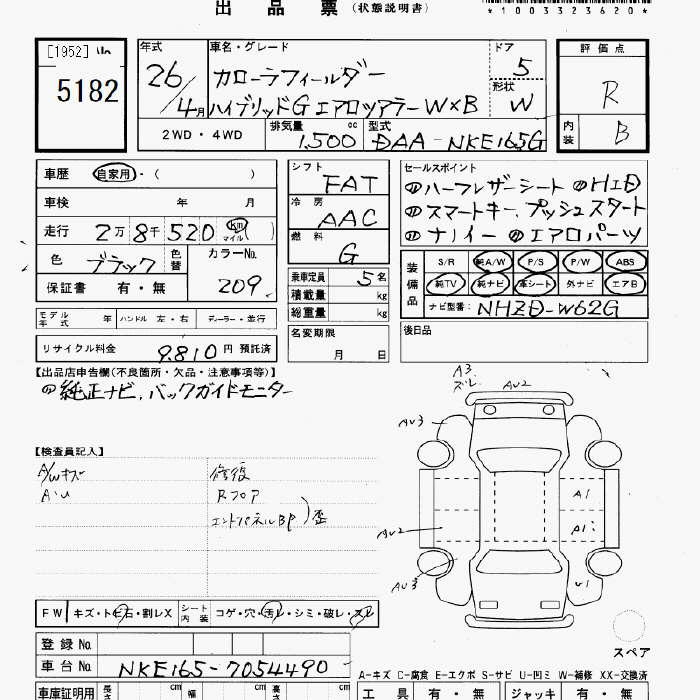 出品票（状態説明書）
*1003323620*
[1952]
5182
年式 26／4月
車名・グレード
カローラフィールダー
ハイブリッドG エアロツアラー W×B
ドア 5
形状 W
評価点 R
内装 B
2WD・4WD 排気量 1,500 cc 型式 DAA-NKE165G
車歴 自家用・( )
車検 年 月
走行 2万8千520 km マイル ( )
色 ブラック 色替 カラーNo. 209
保証書 有・無
シフト FAT
冷房 AAC
燃料 G
乗車定員 5名
積載量 kg
総重量 kg
セールスポイント
ハーフレザーシート HID
スマートキー、プッシュスタート
ナノイー エアロパーツ
装備品 S/R 純A/W P/S P/W ABS
純TV 純ナビ 革シート 外ナビ エアB
ナビ型番: NHZD-W62G
モデル年式 年 ハンドル 左・右 ディーラー・並行
名変期限 月 日
後日品
リサイクル料金 9,810円 預託済
【出品店申告欄(不良箇所・欠品・注意事項等)】
純正ナビ、バックガイドモニター
【検査員記入】
A/Wキズ
A・U
修復
Rフロア
エンドパネルBP
歪
A3
ズレ
AU2
AU3
A1
AU2
A1
AU3
U1
スペア
FW キズ・トビ石・割レX シート内装 コゲ・穴・汚レ・シミ・破レ・スレ
登録No.
車台No. NKE165-7054490
A-キズ C-腐食 E-エクボ S-サビ U-凹ミ W-補修 XX-交換済
車庫証明用 長さ cm 幅 cm 高さ cm
工具 有・無 ジャッキ 有・無